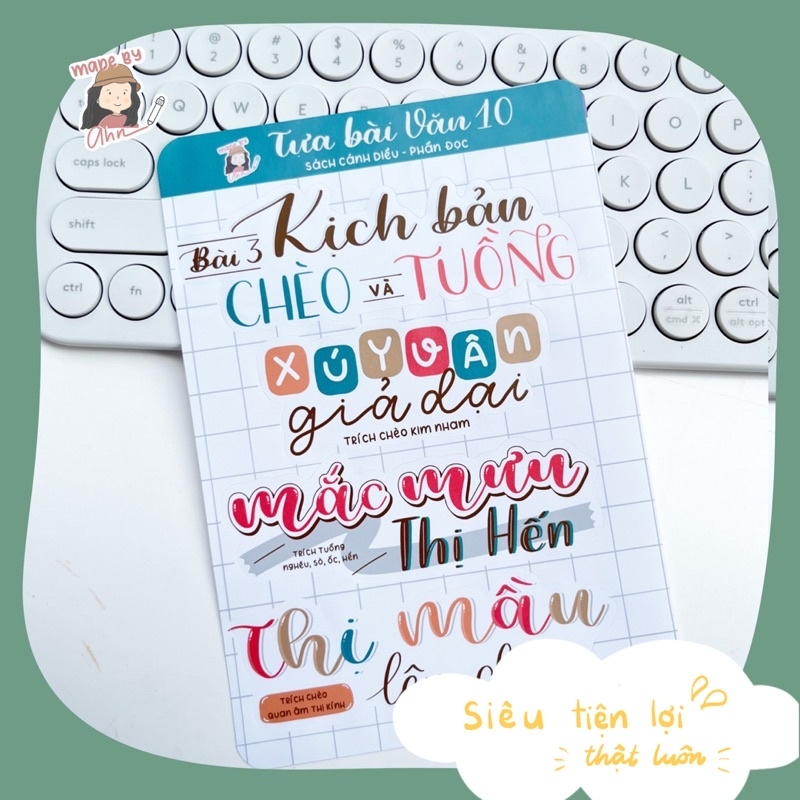 made by
ahn
! 1
@ 2
# 3
$ 4
% 5
^ 6
& 7
* 8
( 9
Q W E
caps lock
K L
shift
ctrl fn
alt ctrl
cmd ⌘ alt opt
Tựa bài Văn 10
SÁCH CÁNH DIỀU - PHẦN ĐỌC
Bài 3 Kịch bản
CHÈO VÀ TUỒNG
XÚY VÂN
giả dại
TRÍCH CHÈO KIM NHAM
mắc mưu
Thị Hến
TRÍCH TUỒNG
NGHÊU, SÒ, ỐC, HẾN
Thị mầu
TRÍCH CHÈO
QUAN ÂM THỊ KÍNH
Siêu tiện lợi
thật luôn